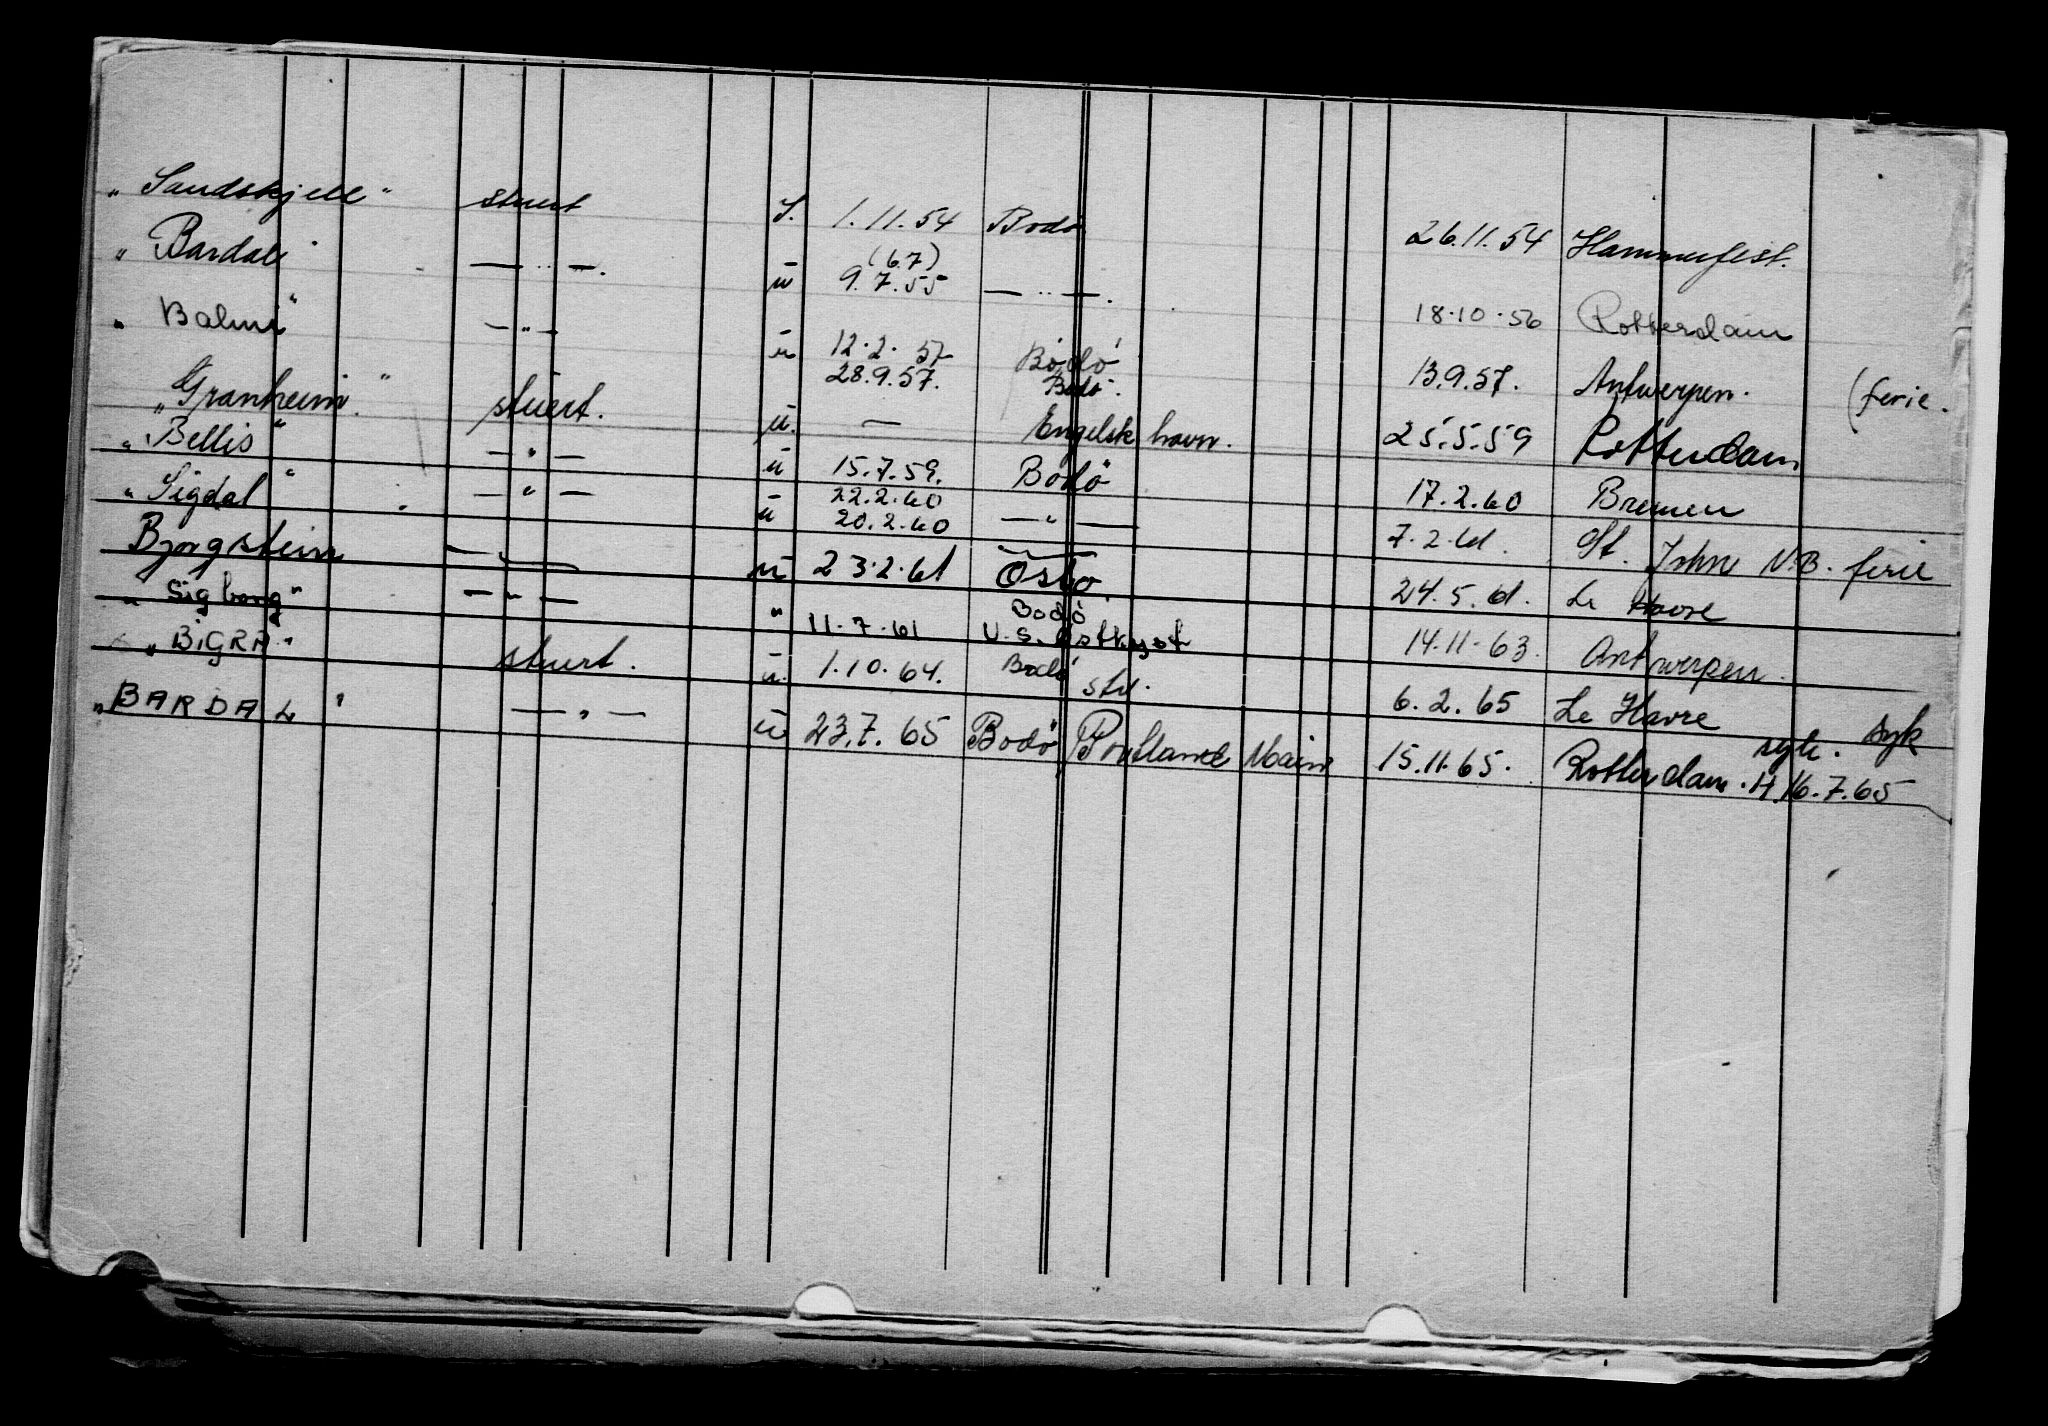 „ Sandskjell " stuert S. 1.11.54 Bodø 26.11.54 Hammerfest.
„ Bardal " — „ —. u (6.7) 9.7.55 — „ —. 18.10.56 Rotterdam
„ Balmi " — „ — u 12.2.57 Bodø 13.9.57. Antwerpen. (ferie.
28.9.57. Bodø.
„ Granheim " stuert. u. — Engelsk havn. 25.5.59 Rotterdam
„ Bellis " — „ — u 15.7.59. Bodö 17.2.60 Bremen
22.2.60
„ Sigdal " — „ — u 20.2.60 — „ — 7.2.61. St. John N.B. ferie
Bjorgstein — „ — u 23.2.61 Oslo. 24.5.61. Le Havre
Bodö
„ Sigborg " — „ — " 11.7.61 U.S. Østkyst 14.11.63. Antwerpen.
„ BiGRA " stuert. u. 1.10.64. Bodö std. 6.2.65 Le Havre syk
syk.
„ BARDAL " — „ — u 23.7.65 Bodö Portland Main 15.11.65. Rotterdam. H.16.7.65